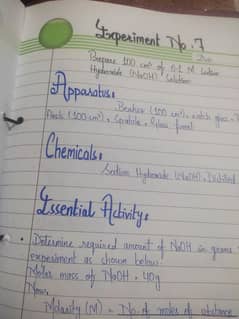 Experiment No. 7
Prepare 100 cm³ of 0.1 M Sodium
Hydroxide (NaOH) Solution
Apparatus:
Beaker (100 cm³), watch glass
flask (100 cm³), Spatula, Glass funnel
Chemicals:
Sodium Hydroxide (NaOH), Distilled
Essential Activity:
Determine required amount of NaOH in grams
experiment as shown below.
Molar mass of NaOH = 40g
Now,
Molarity (M) = No. of moles of substance